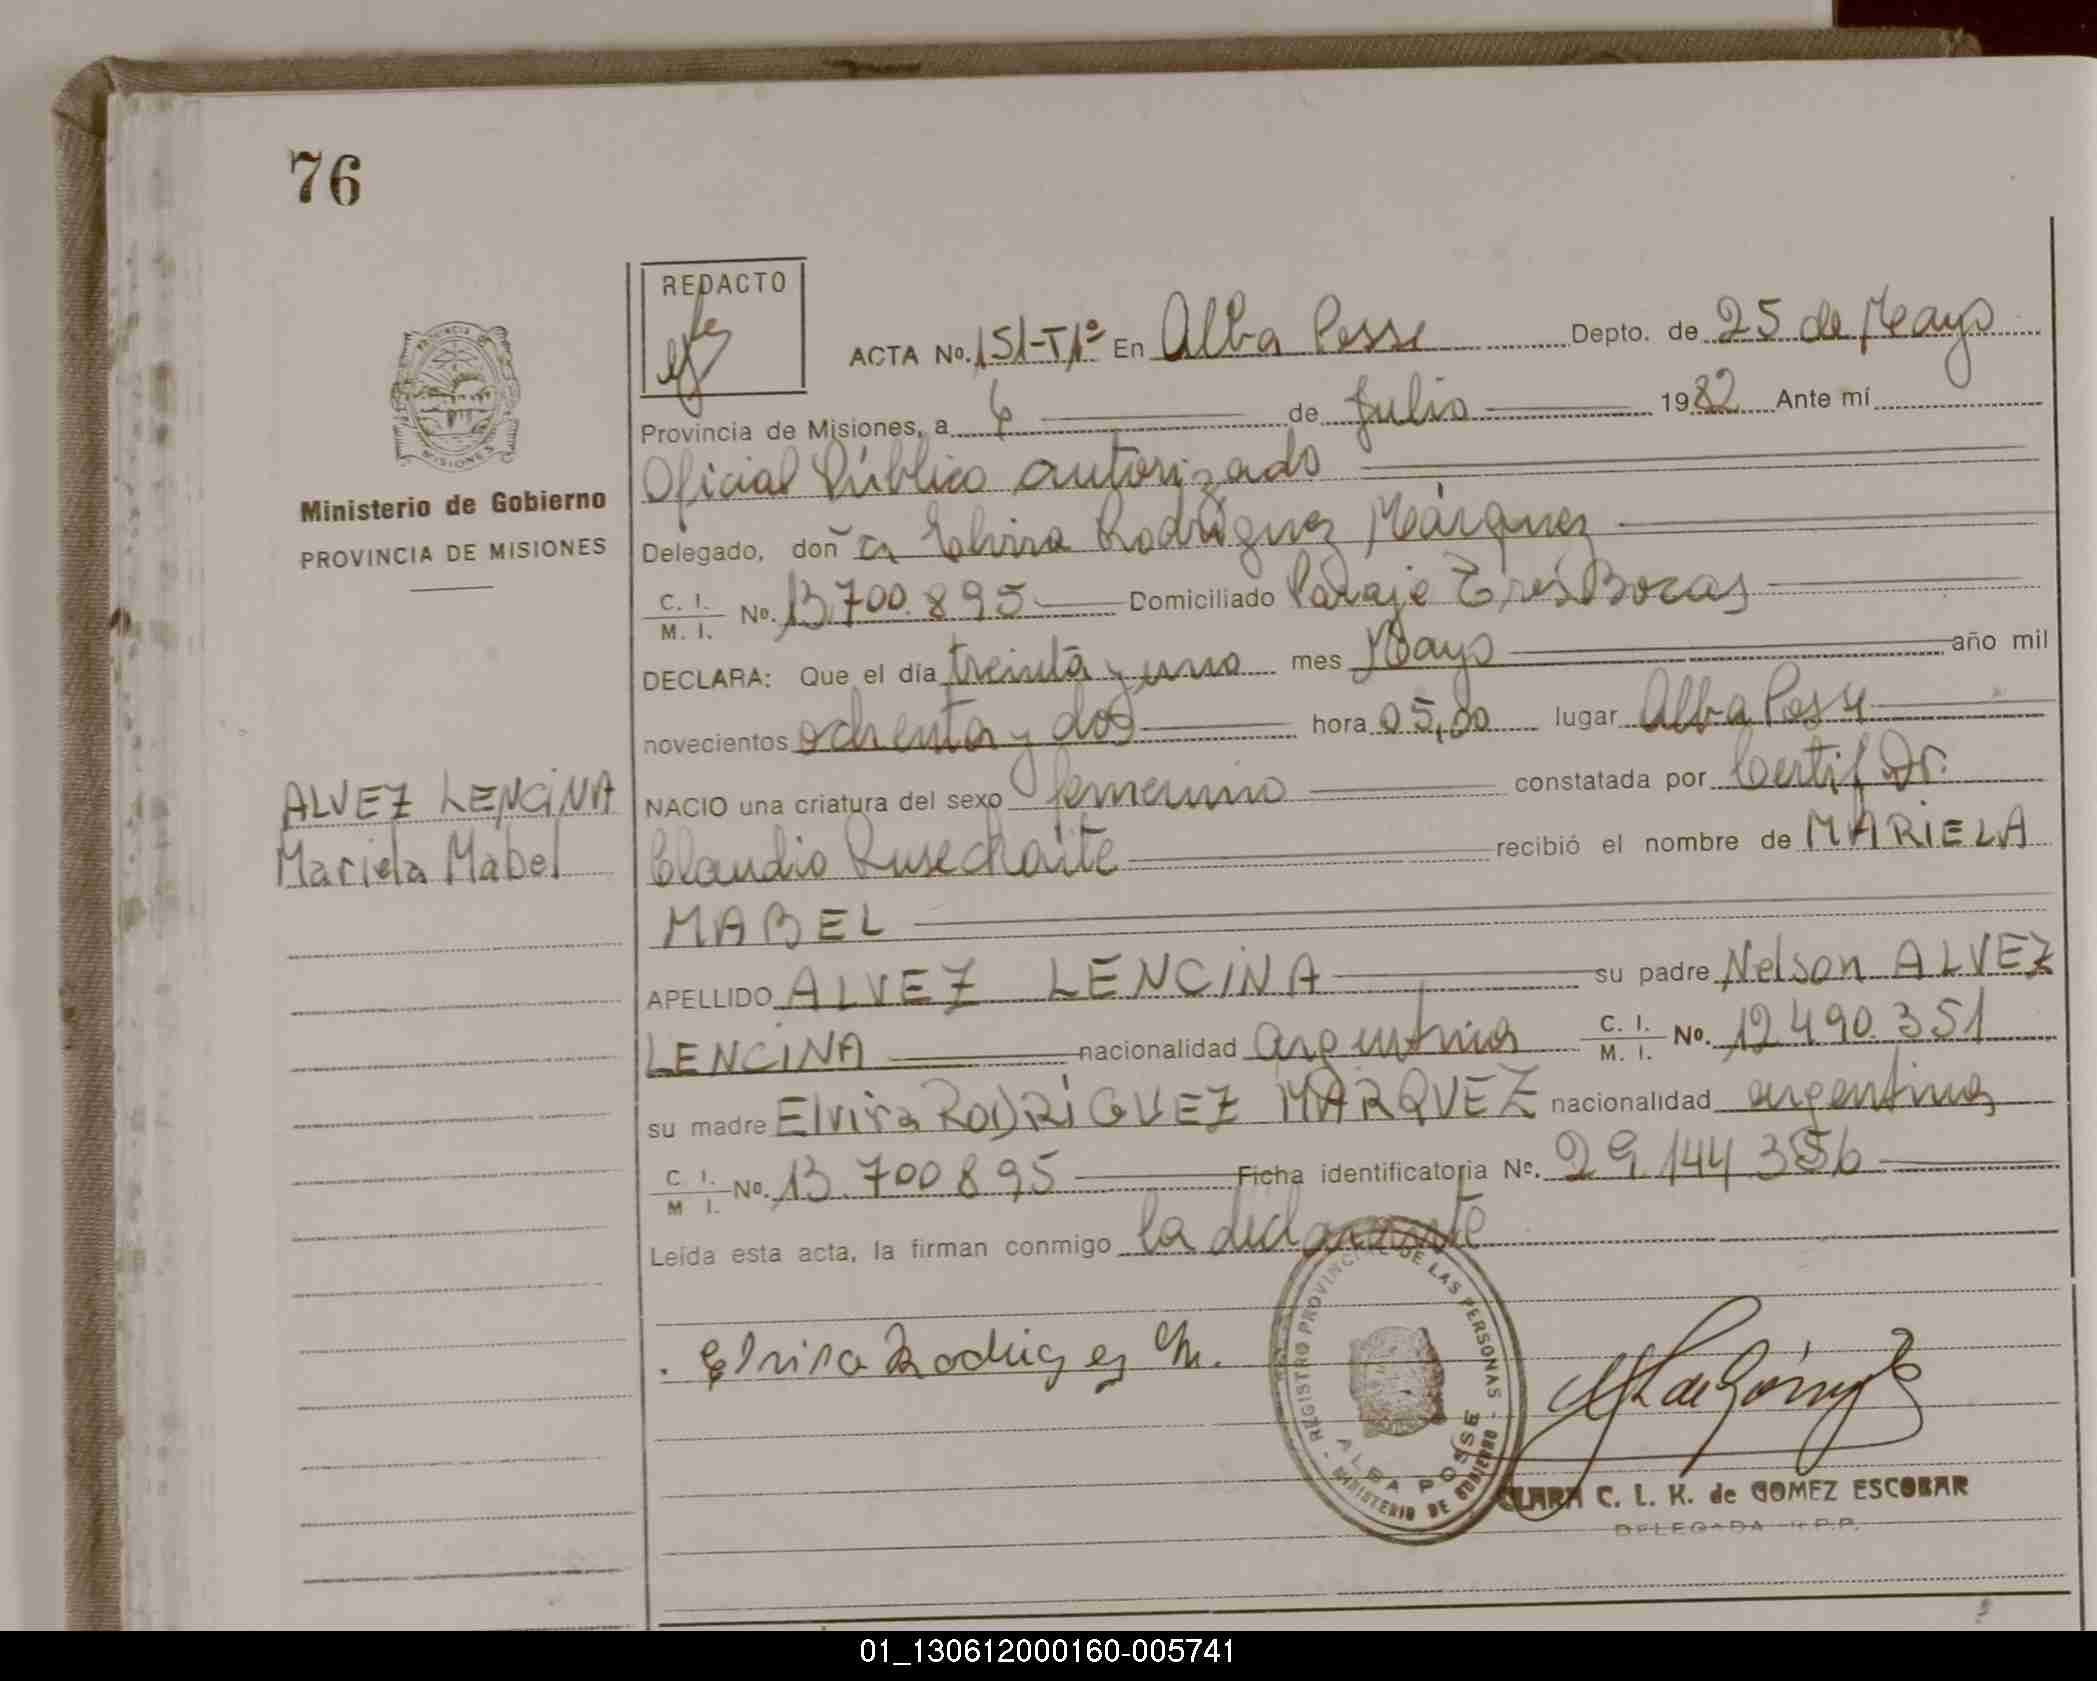 76
REDACTO
ACTA No. 151-T1º En Alba Posse Depto. de 25 de Mayo
Provincia de Misiones, a 6 de Julio 1982 Ante mí
Oficial Público autorizado
Ministerio de Gobierno
PROVINCIA DE MISIONES
Delegado, doñ a Elvira Rodríguez Márquez
C. I. M. I. No. 13.700.895 Domiciliado Paraje Tres Bocas
DECLARA: Que el día treinta y uno mes Mayo año mil
novecientos ochenta y dos hora 05,00 lugar Alba Posse
ALVEZ LENCINA
Mariela Mabel
NACIO una criatura del sexo femenino constatada por Certif Dr.
Claudio recibió el nombre de MARIELA
MABEL
APELLIDO ALVEZ LENCINA su padre Nelson ALVEZ
LENCINA nacionalidad argentina C. I. M. I. No. 12.490.351
su madre Elvira RODRIGUEZ MARQUEZ nacionalidad argentina
C. I. M I. No. 13.700.895 Ficha identificatoria No. 29.144.356
Leída esta acta, la firman conmigo la declarante
Elvira Rodriguez M.
REGISTRO PROVINCIAL DE LAS PERSONAS
ALBA POSSE
MINISTERIO DE GOBIERNO
CLARA C. L. K. de GOMEZ ESCOBAR
DELEGADA R.P.P.
01_130612000160-005741